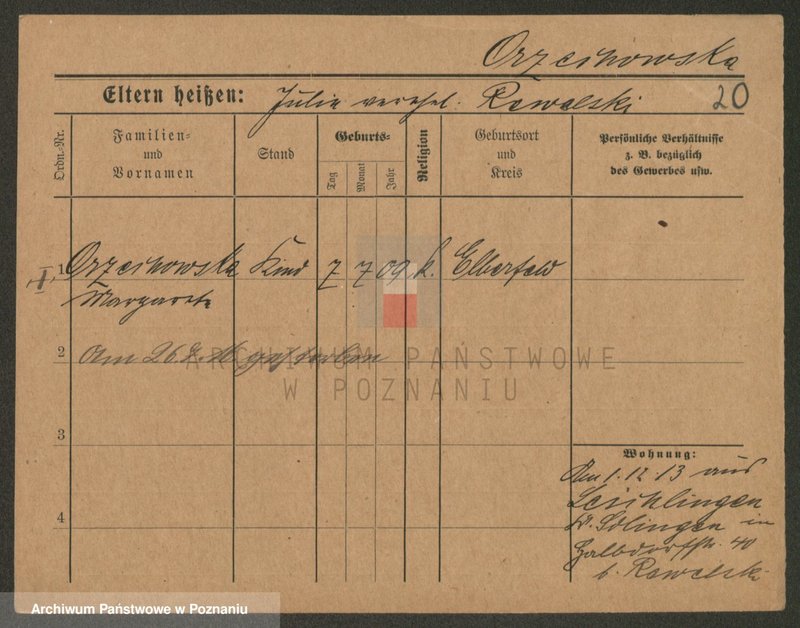 Orzechowska
Eltern heißen: Julie verehel. Rewelski 20
Ordn.-Nr.
Familien-
und
Vornamen
Stand
Geburts-
Tag
Monat
Jahr
Religion
Geburtsort
und
Kreis
Persönliche Verhältnisse
z. B. bezüglich
des Gewerbes usw.
1 Orzechowska Kind 7 7 09 k. Elberfeld
Margarete
2 Am 26. gestorben
ARCHIWUM PAŃSTWOWE
W POZNANIU
3
Wohnung:
Am 1.12.13 aus
Leichlingen
4 Kr. Solingen in
Halbdorfstr. 40
b. Rewelski
Archiwum Państwowe w Poznaniu